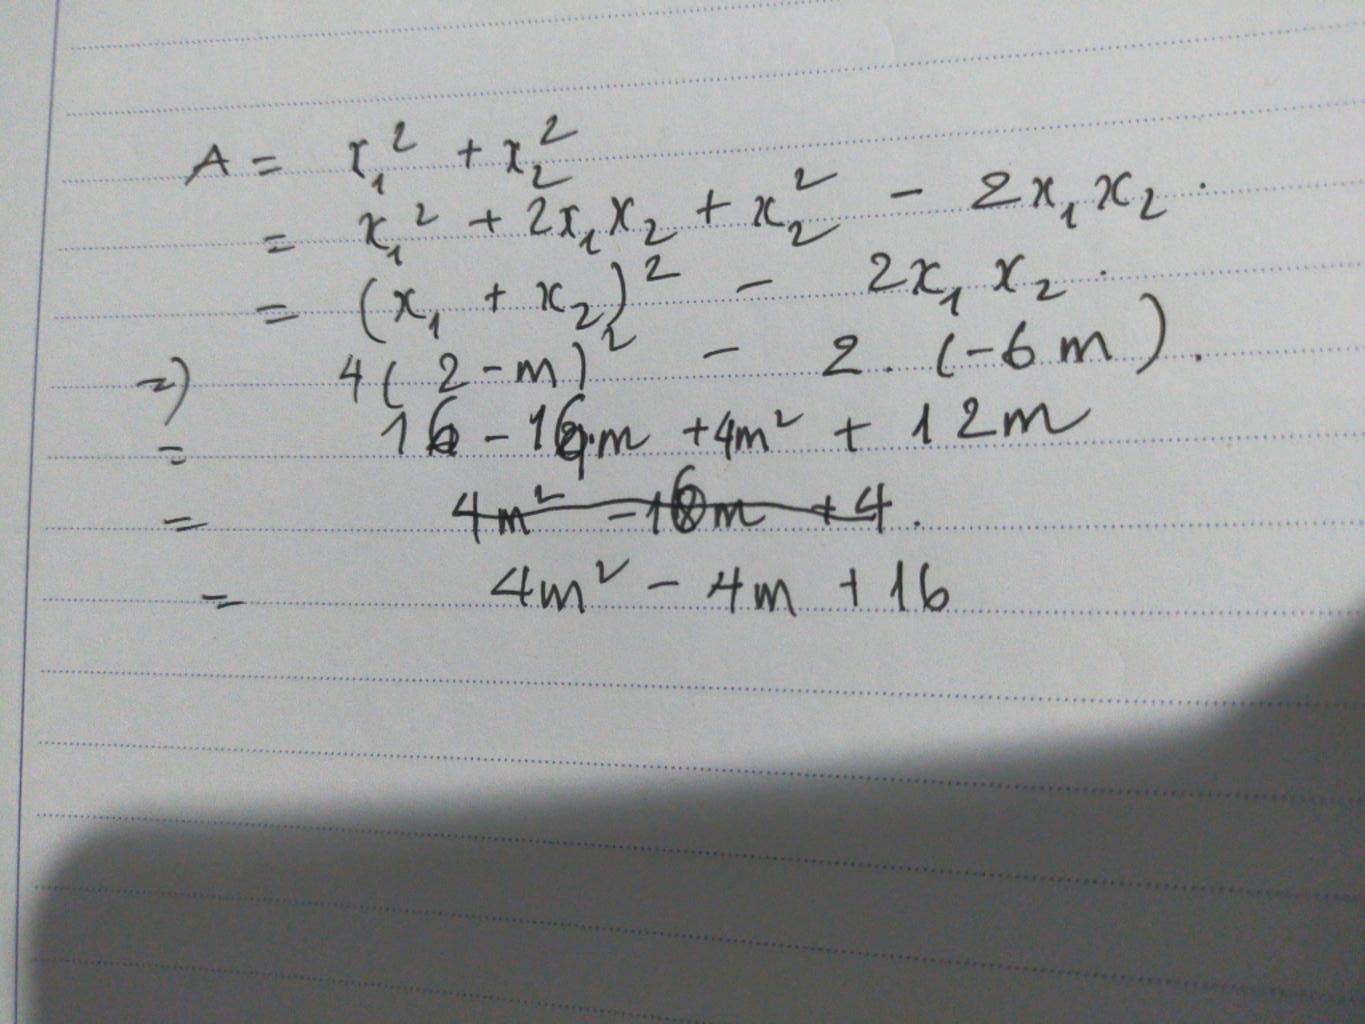 A = x₁² + x₂²
= x₁² + 2x₁x₂ + x₂² - 2x₁x₂.
= (x₁ + x₂)² - 2x₁x₂.
=) 4(2-m)² - 2.(-6m).
= 16 - 16m + 4m² + 12m
= 4m² - 16m + 4.
= 4m² - 4m + 16